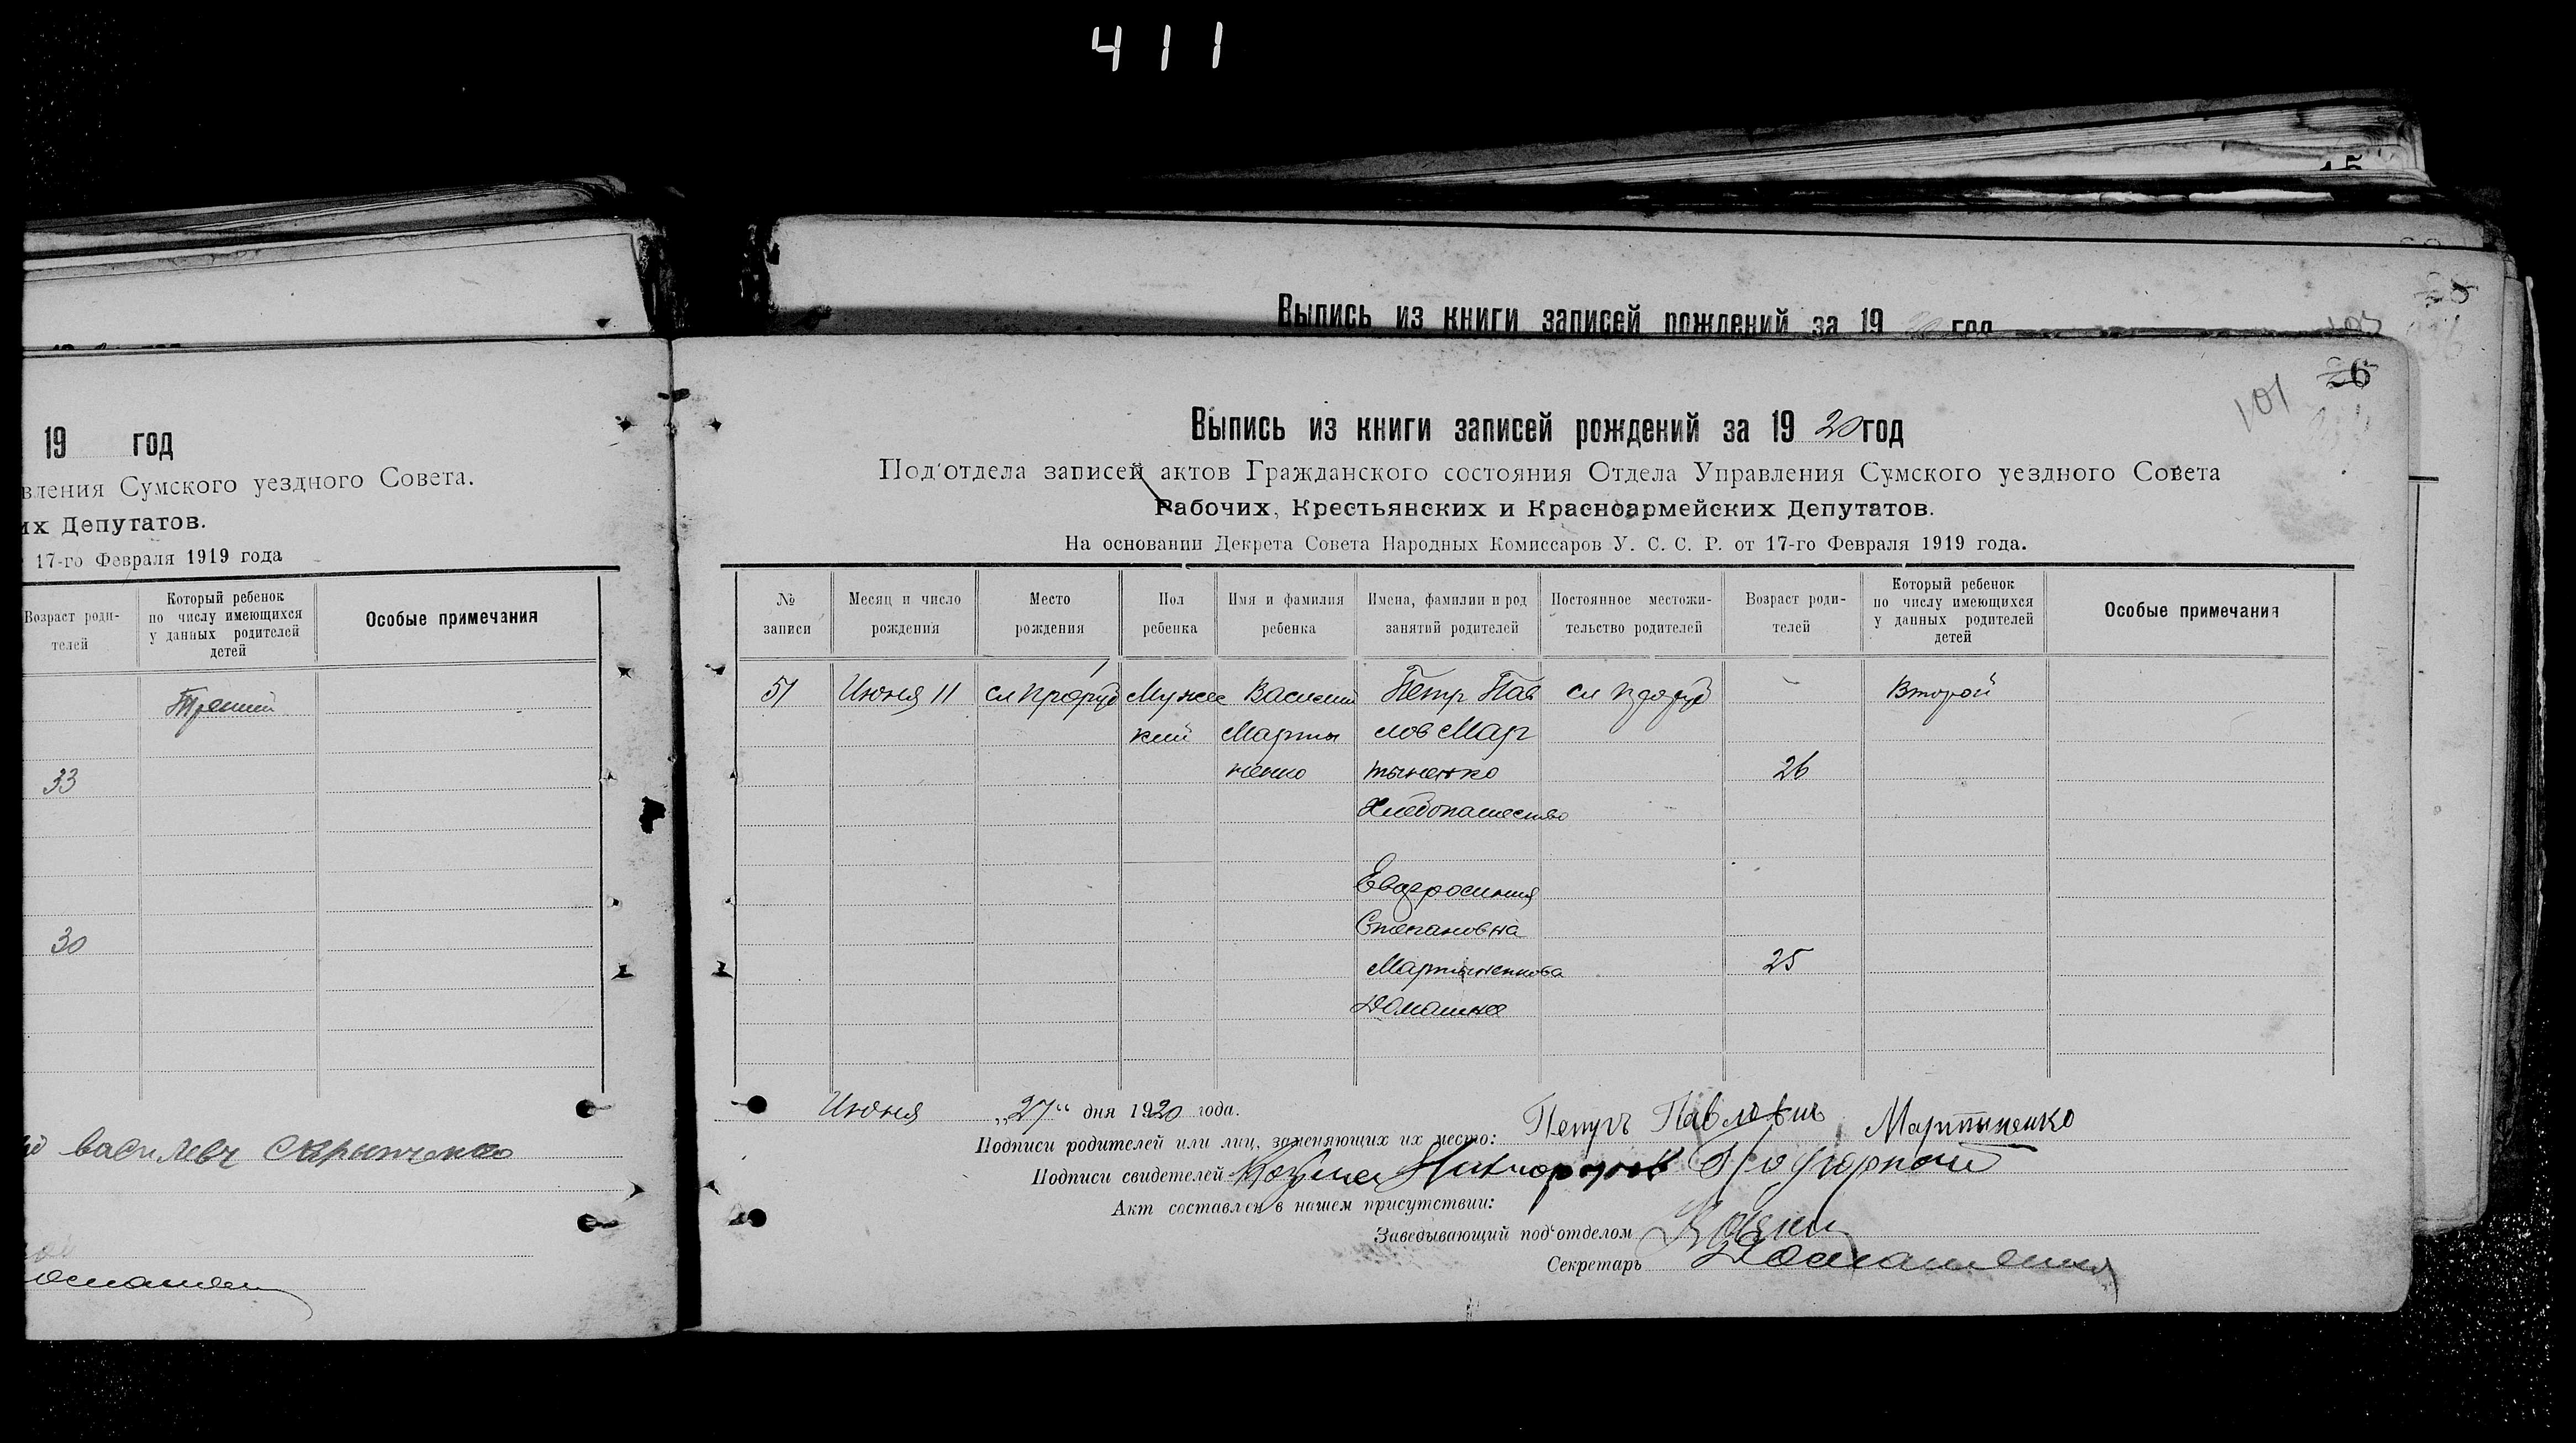 411
15
Выпись из книги записей рождений за 19 год
19 год
вления Сумского уездного Совета.
их Депутатов.
17-го Февраля 1919 года
Возраст роди-
телей
Который ребенок
по числу имеющихся
у данных родителей
детей
Особые примечания
Третий
33
30
26
101
Выпись из книги записей рождений за 1920 год
Под'отдела записей актов Гражданского состояния Отдела Управления Сумского уездного Совета
Рабочих, Крестьянских и Красноармейских Депутатов.
На основании Декрета Совета Народных Комиссаров У. С. С. Р. от 17-го Февраля 1919 года.
№
записи
Месяц и число
рождения
Место
рождения
Пол
ребенка
Имя и фамилия
ребенка
Имена, фамилии и род
занятий родителей
Постоянное местожи-
тельство родителей
Возраст роди-
телей
Который ребенок
по числу имеющихся
у данных родителей
детей
Особые примечания
51 Июня 11 сл Мужес Василий Петр Пав сл Второй
кий Марты лов Мар
ненко тыненко 26
Хлебопашество
Евфросиния
Степановна
Мартыненкова 25
Домашнее
Июня „27“ дня 1920 года.
Подписи родителей или лиц, заменяющих их место: Петръ Павловичъ Мартыненко
Подписи свидетелей Козма Никифоров
Акт составлен в нашем присутствии:
Заведывающий под'отделом
Секретарь